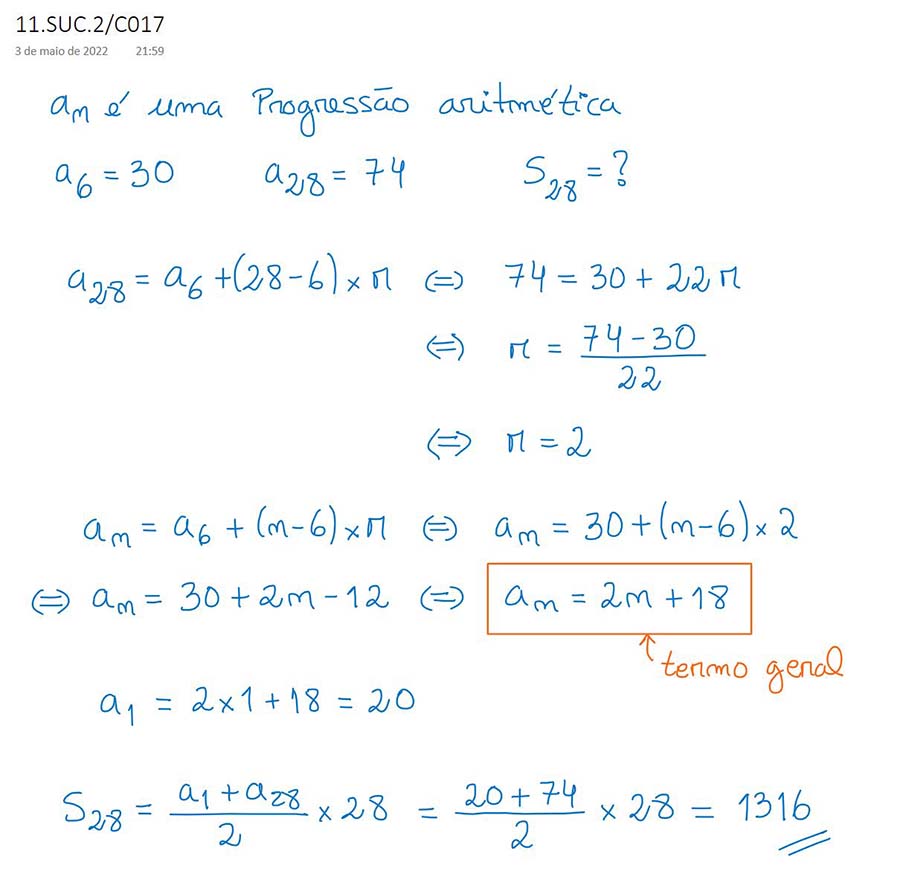 11.SUC.2/C017
3 de maio de 2022 21:59
aₙ é uma Progressão aritmética
a₆ = 30 a₂₈ = 74 S₂₈ = ?
a₂₈ = a₆ + (28 - 6) × r ⇔ 74 = 30 + 22 r
⇔ r = (74 - 30)/22
⇔ r = 2
aₙ = a₆ + (n - 6) × r ⇔ aₙ = 30 + (n - 6) × 2
⇔ aₙ = 30 + 2n - 12 ⇔ aₙ = 2n + 18
↑ termo geral
a₁ = 2 × 1 + 18 = 20
S₂₈ = (a₁ + a₂₈)/2 × 28 = (20 + 74)/2 × 28 = 1316